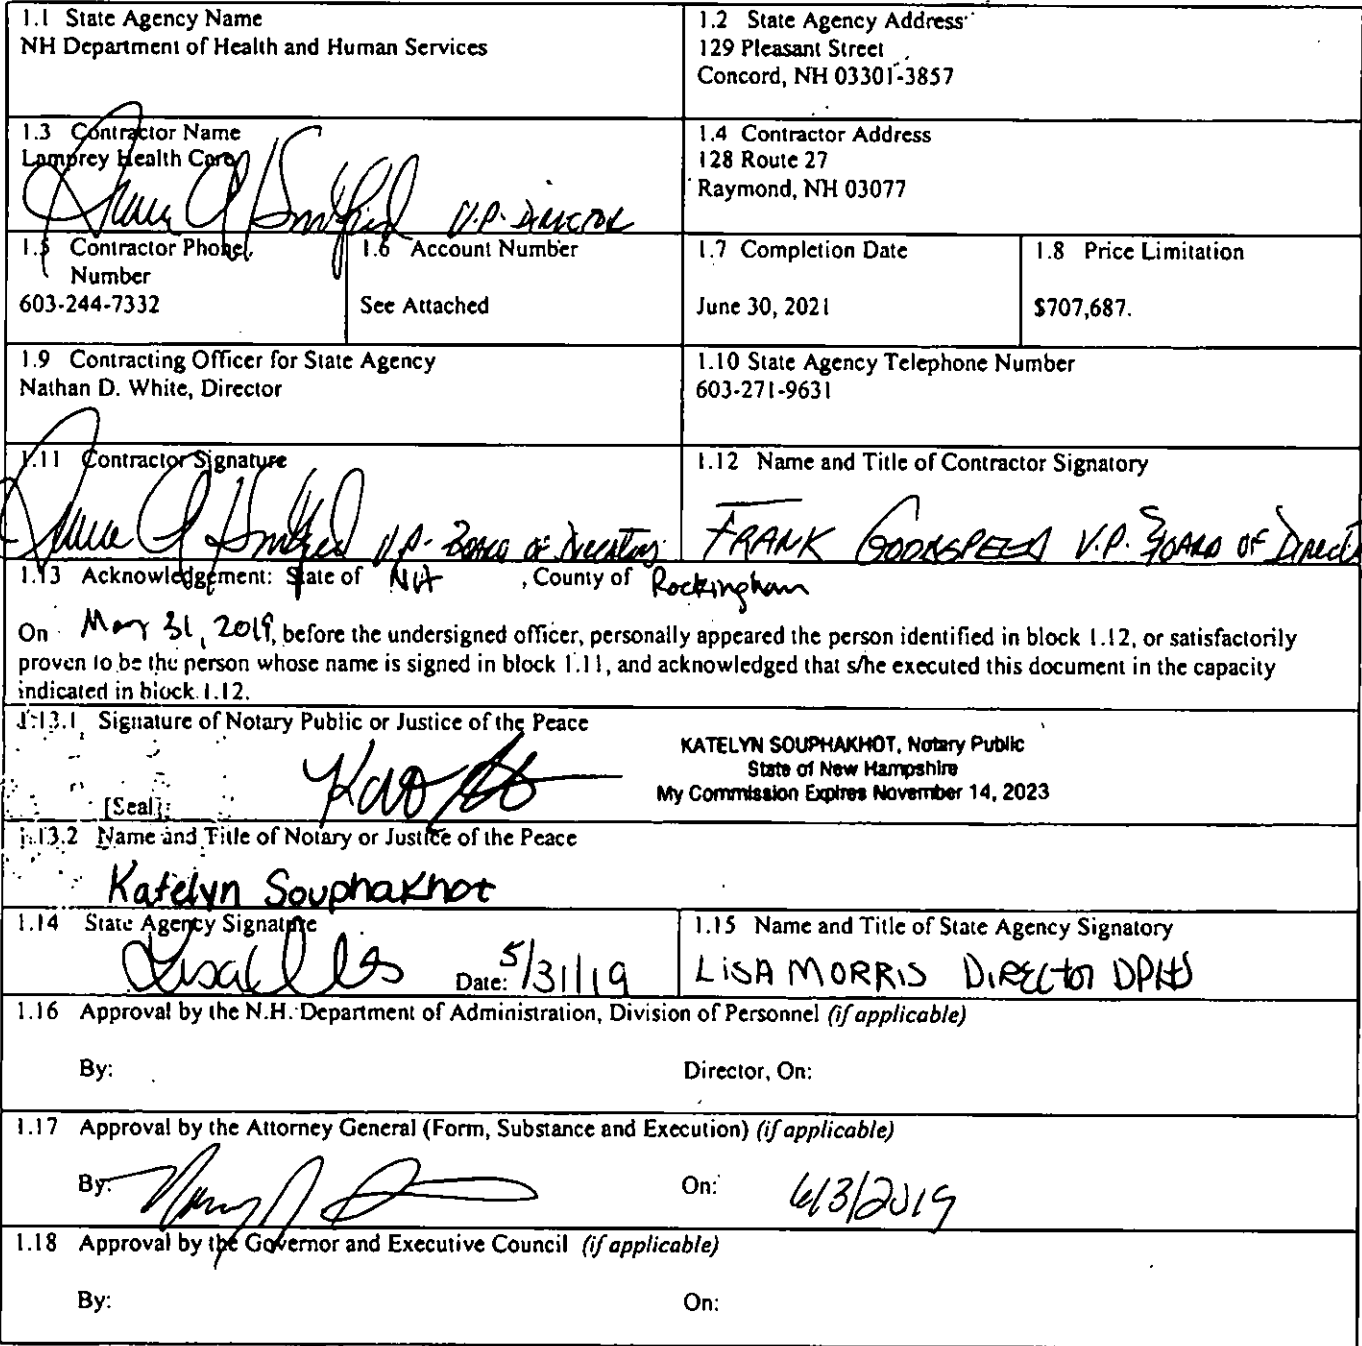 1.1 State Agency Name
NH Department of Health and Human Services
1.2 State Agency Address
129 Pleasant Street
Concord, NH 03301-3857
1.3 Contractor Name
Lamprey Health Care
V.P. DIRECTOR
1.4 Contractor Address
128 Route 27
Raymond, NH 03077
1.5 Contractor Phone
Number
603-244-7332
1.6 Account Number
See Attached
1.7 Completion Date
June 30, 2021
1.8 Price Limitation
$707,687.
1.9 Contracting Officer for State Agency
Nathan D. White, Director
1.10 State Agency Telephone Number
603-271-9631
1.11 Contractor Signature
V.P. BOARD OF DIRECTORS
1.12 Name and Title of Contractor Signatory
FRANK GOODSPEED V.P. BOARD OF DIRECTO
1.13 Acknowledgement: State of NH , County of Rockingham
On May 31, 2019, before the undersigned officer, personally appeared the person identified in block 1.12, or satisfactorily
proven to be the person whose name is signed in block 1.11, and acknowledged that s/he executed this document in the capacity
indicated in block 1.12.
1.13.1 Signature of Notary Public or Justice of the Peace
KATELYN SOUPHAKHOT, Notary Public
State of New Hampshire
My Commission Expires November 14, 2023
[Seal]
1.13.2 Name and Title of Notary or Justice of the Peace
Katelyn Souphakhot
1.14 State Agency Signature
Date: 5/31/19
1.15 Name and Title of State Agency Signatory
LISA MORRIS DIRECTOR DPHS
1.16 Approval by the N.H. Department of Administration, Division of Personnel (if applicable)
By:
Director, On:
1.17 Approval by the Attorney General (Form, Substance and Execution) (if applicable)
By:
On: 6/3/2019
1.18 Approval by the Governor and Executive Council (if applicable)
By:
On: